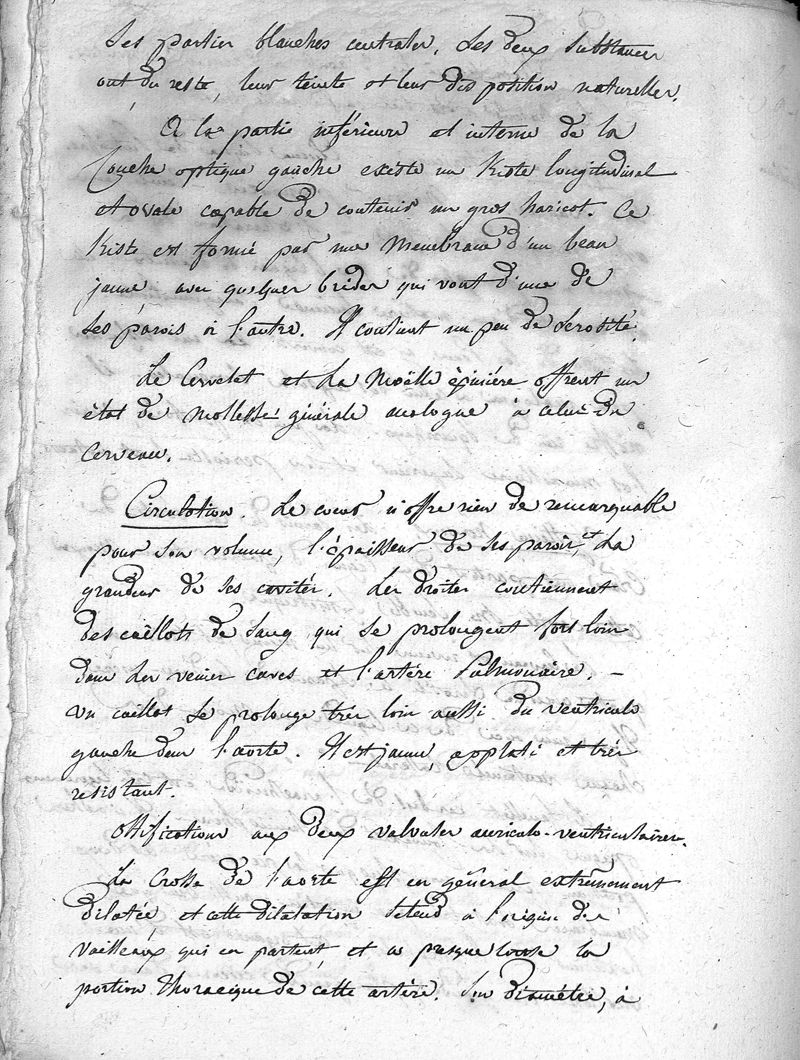 ses parties blanches centrales. Les deux substances
ont du reste, leur teinte et leur disposition naturelles.
A la partie inférieure et interne de la
Couche optique gauche existe un Kiste longitudinal
et ovale capable de contenir un gros haricot. Ce
Kiste est formé par une Membrane d'un beau
jaune, avec quelques brides qui vont d'une de
ses parois à l'autre. Il contient un peu de serosité.
Le Cervelet et la Moëlle épinière offrent un
état de Mollesse générale analogue à celui du
Cerveau.
Circulation. Le cœur n'offre rien de remarquable
pour son volume, l'épaisseur de ses parois, et la
grandeur de ses cavités. Les droites contiennent
des caillots de sang qui se prolongent fort loin
dans les veines caves et l'artère Pulmonaire. –
Un caillot se prolonge très loin aussi du ventricule
gauche dans l'aorte. Il est jaune, applati et très
resistant.
Ossifications aux deux valvules auriculo-ventriculaires.
La Crosse de l'aorte est en général extrêmement
dilatée, et cette dilatation s'étend à l'origine des
vaisseaux qui en partent, et a presque toute la
portion Thoracique de cette artère. Son diamètre, à